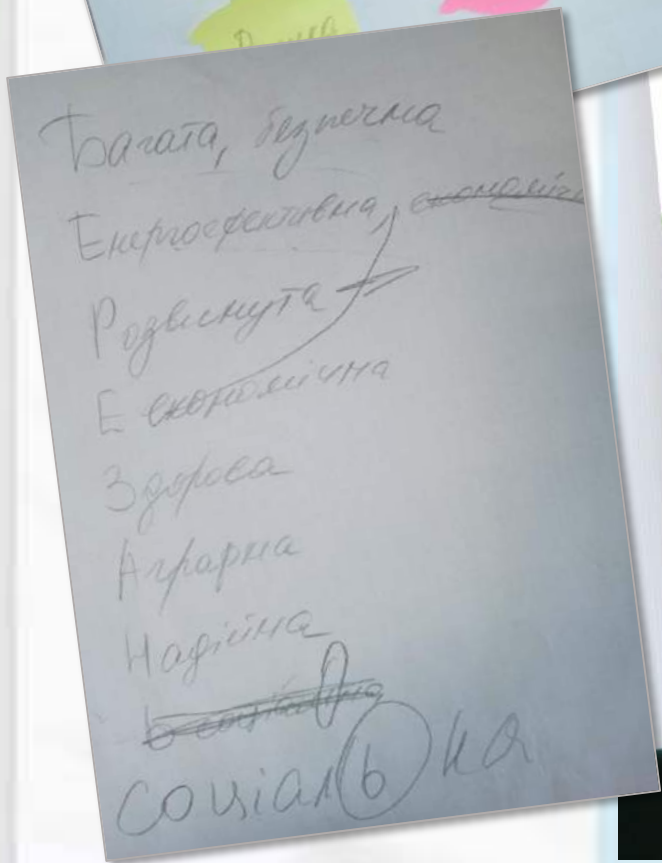 Багата, безпечна
Енергоефективна, економічн
Розвинута
Е економічна
Здорова
Аграрна
Надійна
Ь соціальна
соціальна